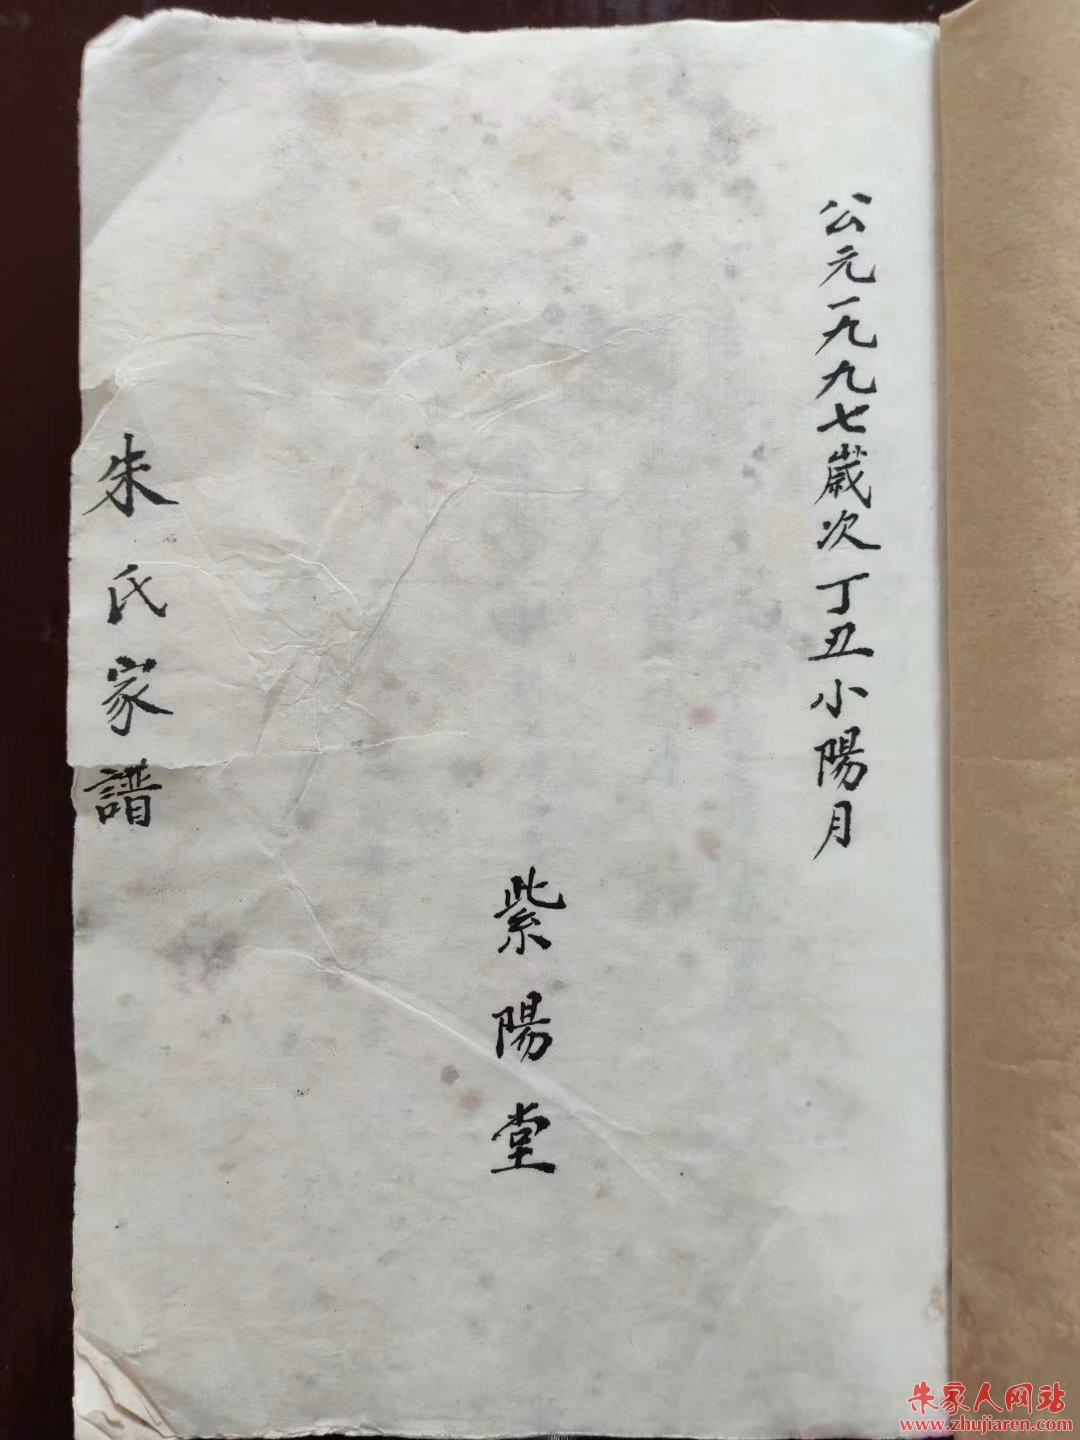 公元一九九七歲次丁丑小陽月
紫陽堂
朱氏家譜
朱家人网站
www.zhujiaren.com